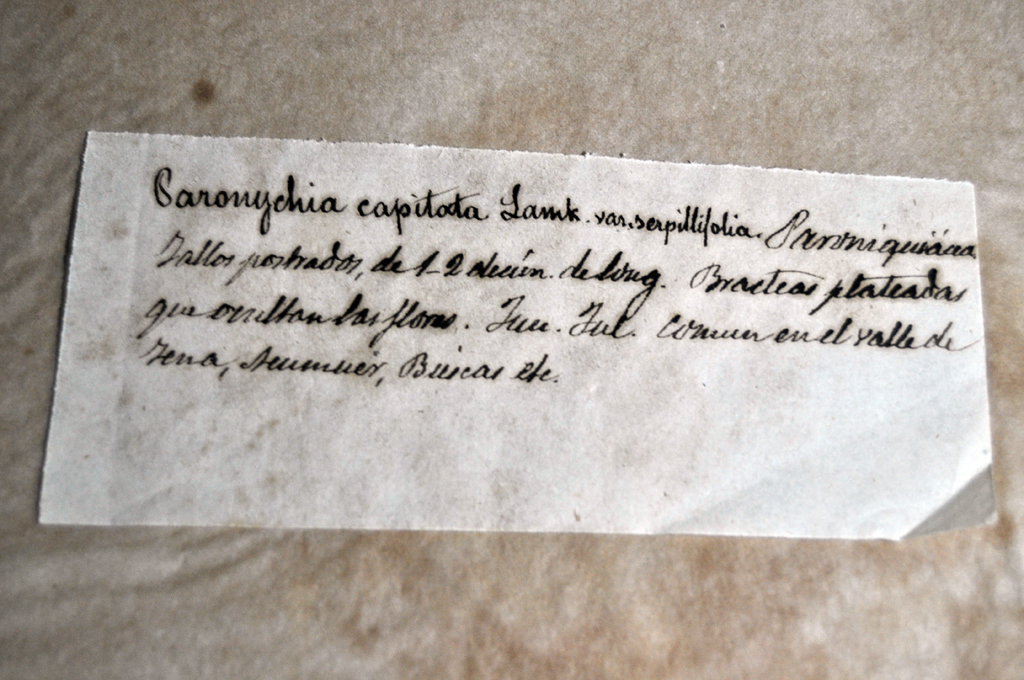 Paronychia capitata Lamk. var. serpillifolia. Paroniquiácea
Tallos postrados, de 1-2 decím. de long. Bracteas plateadas
que ocultan las flores. Jun. Jul. Comun en el valle de
Tena, Biescas etc.